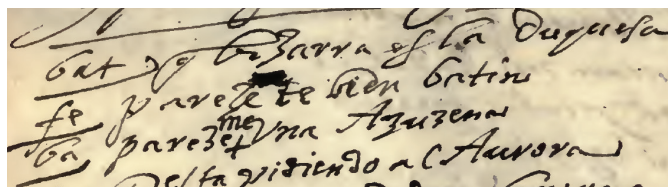 bat q biZarra es la duquesa
fe pareZete bien batin
ba pareZeme Vna AZuZena
esta pidiendo al Aurora